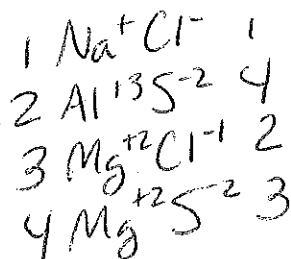 1 Na⁺Cl⁻ 1
2 Al⁺³S⁻² 4
3 Mg⁺²Cl⁻¹ 2
4 Mg⁺²S⁻² 3